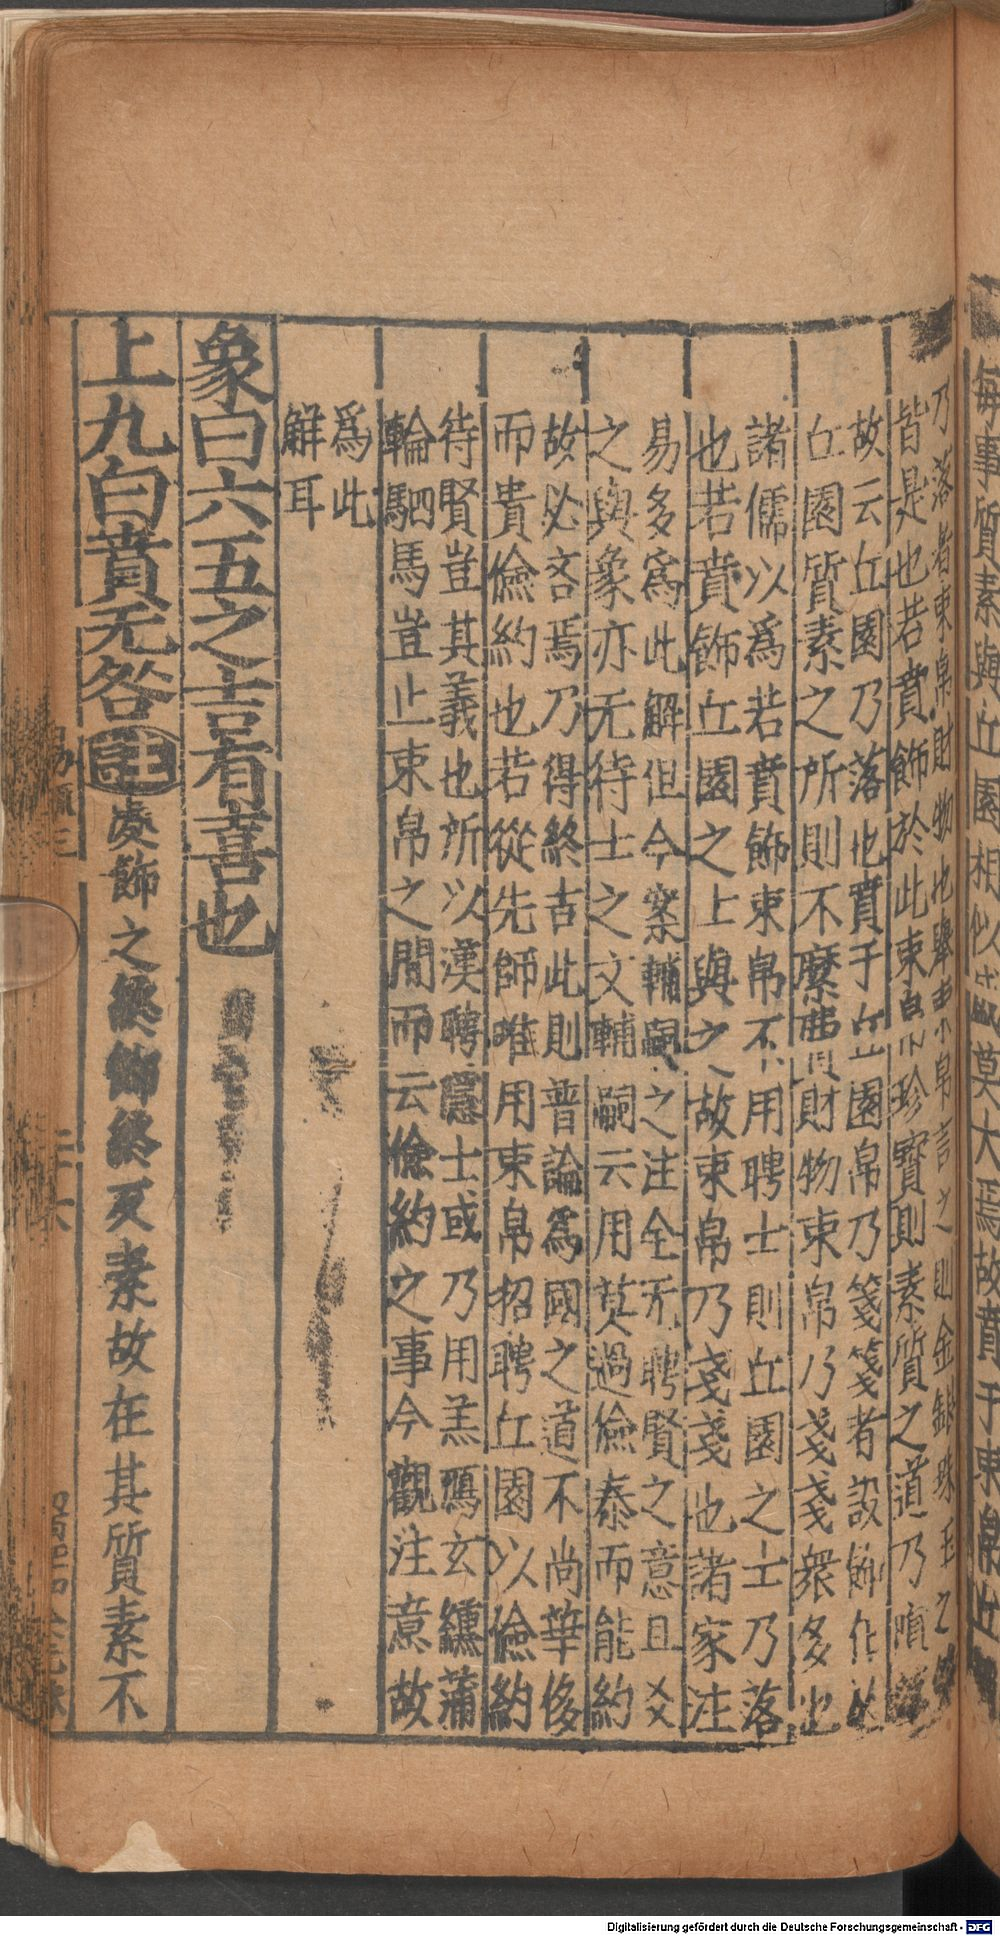 每事質素與丘園相似盛莫大焉故賁于束帛丘
乃落者束帛財物也舉束帛言之則金銀珠玉之
皆是也若賁飾於此束帛珍寶則素質之道乃隕
故云丘園乃落也賁于丘園帛乃箋箋者設飾在
丘園質素之所則不縻費財物束帛乃戔戔衆多也
諸儒以爲若賁飾束帛不用聘士則丘園之士乃落
也若賁飾丘園之上與之故束帛乃戔戔也諸家注
易多爲此解但今案輔嗣之注全无聘賢之意且爻
之與象亦无待士之文輔嗣云用莫過儉泰而能約
故必吝焉乃得終吉此則普論爲國之道不尚華侈
而貴儉約也若從先師唯用束帛招聘丘園以儉約
待賢豈其義也所以漢聘隱士或乃用羔鴈玄纁蒲
輪駟馬豈止束帛之閒而云儉約之事今觀注意故
爲此
解耳
象曰六五之吉有喜也
上九白賁无咎 註 處飾之終飾終反素故在其質素不
Digitalisierung gefördert durch die Deutsche Forschungsgemeinschaft - DFG